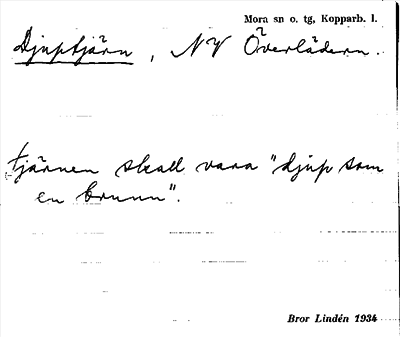 Mora sn o. tg, Kopparb. l.
Djuptjärn, NV Överlädern.
tjärnen skall vara "djup som
en brunn".
Bror Lindén 1934